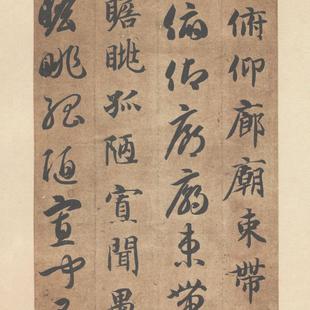 俯仰廊廟束帶
俯仰廊廟束帶
瞻眺孤陋寡聞愚
瞻眺孤陋寡聞